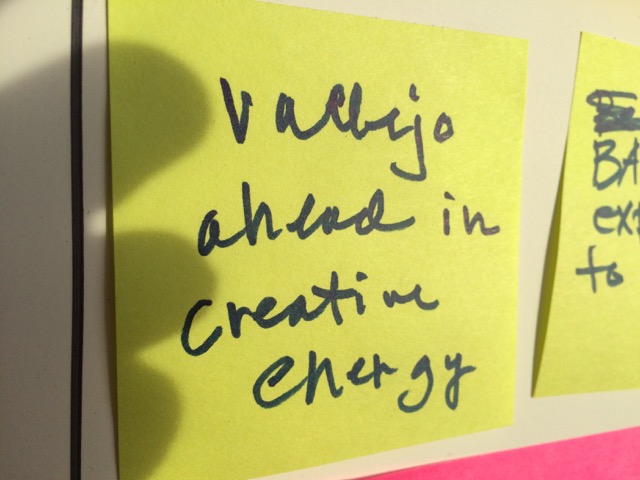 Vallejo
ahead in
Creative
energy
BA
ext
to